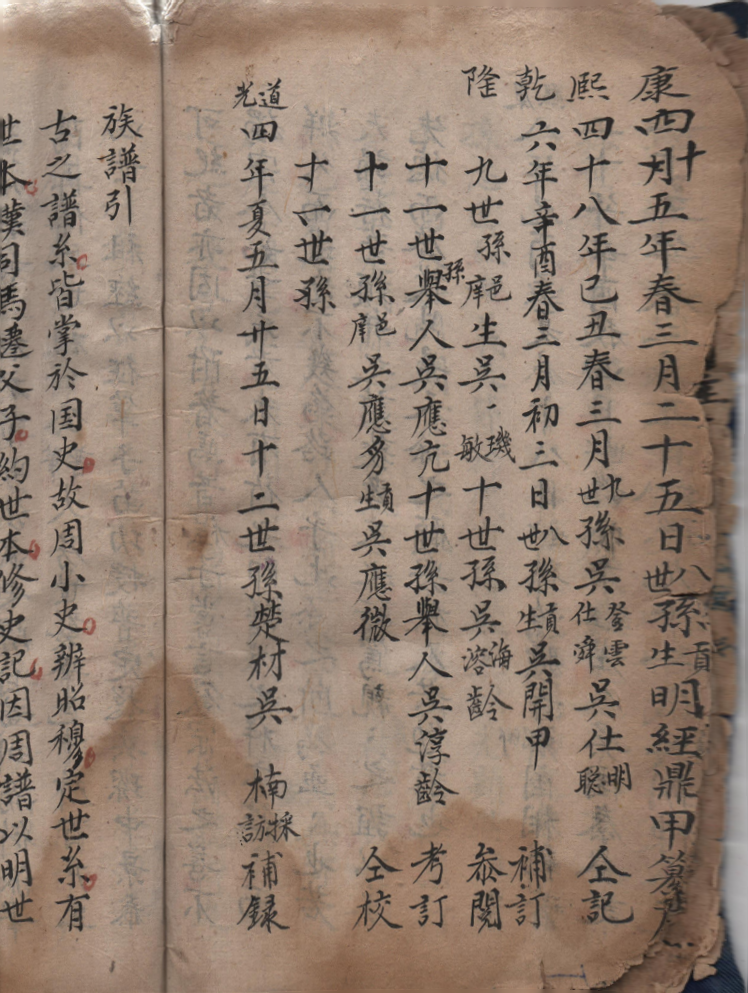 康四十五年春三月二十五日八世孫貢生明經鼎甲纂
熙四十八年己丑春三月九世孫吳登雲仕舜吳仕明聰仝記
乾六年辛酉春三月初三日八世孫貢生吳開甲補訂
隆九世孫邑庠生吳璣敏十世孫吳海溶齡叅閱
十一世孫舉人吳應亢十世孫舉人吳淳齡考訂
十一世孫邑庠吳應貢生吳應微仝校
十一世孫
道光四年夏五月廿五日十二世孫楚材吳楠採訪補録
族譜引
古之譜系皆掌於国史故周小史辨昭穆定世系有
世本漢司馬遷父子約世本修史記因周譜以明世